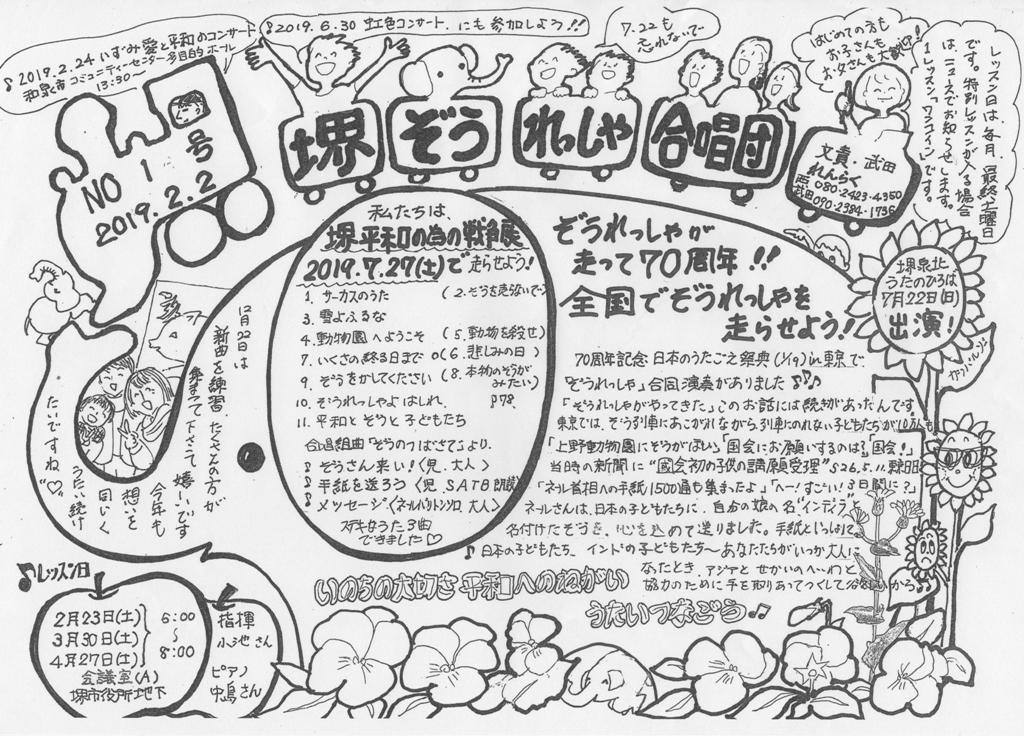 ♪2019.2.24 いずみ愛と平和のコンサート
和泉市コミュニティーセンター多目的ホール
13:30〜
♪2019.6.30 虹色コンサート.にも参加しよう!!
7.22も
忘れないで
はじめての方も
お子さんも
お父さんも大歓迎!
レッスン日は、毎月、最終土曜日
です。特別レッスンが入る場合
は、ニュースでお知らせします。
1レッスン「ワンコイン」です。
NO 1 号
2019.2.2
堺 ぞう れっしゃ 合唱団
文責.武田
れんらく
西 080-2423-4350
武田090-2384-1736
私たちは、
堺 平和の為の戦争展
2019.7.27(土)で走らせよう!
1. サーカスのうた (2.ぞうを売らないで)
3. 雪よふるな
4. 動物園へようこそ (5.動物を殺せ)
7. いくさの終る日まで (6.悲しみの日)
9. ぞうをかしてください (8.本物のぞうがみたい)
10. ぞうれっしゃよはしれ、
11. 平和とぞうと子どもたち
合唱組曲「ぞうのつばさて」より、
♪ぞうさん来い!〈児、大人〉
♪手紙を送ろう〈児 SATB 朗読〉
♪メッセージ〈ネールバリトンソロ 大人〉
ステキなうた3曲
できました♡
ぞうれっしゃが
走って70周年!!
全国でぞうれっしゃを
走らせよう!
70周年記念 日本のうたごえ祭典(1/19)in東京で
「ぞうれっしゃ」合同演奏がありました♪♪♪
「ぞうれっしゃがやってきた」このお話には続きがあったんです。
東京では、ぞう列車にあこがれながら列車にのれない子どもたちが10万人も
「上野動物園にぞうがほしい」「国会にお願いするのは?」「国会!」
当時の新聞に"国会初の子供の請願受理"S26.5.11.朝日
「ネール首相への手紙1500通も集まったよ」「へー!すごい!3日間に?」
ネールさんは、日本の子どもたちに、自分の娘の名「インディラ」
名付けたぞうを、心を込めて送りました。手紙といっしょに
♪日本の子どもたち、インドの子どもたち〜あなたたちがいつか大人に
なったとき、アジアと せかいのへいわと
協力のために手を取りあってつくしてくださいから♪
堺泉北
うたのひろば
7月22日(日)
出演!
12月22日は
新曲を練習.たくさんの方が
集まって下さって嬉しいです
今年も
想いを
同じく
うたい続け
たいですね。"♡"
いのちの大切さ 平和へのねがい
うたいつなごう♫
♪レッスン日
2月23日(土)
3月30日(土)
4月27日(土)
6:00
〜
8:00
会議室(A)
堺市役所地下
指揮
小池さん
ピアノ
中島さん